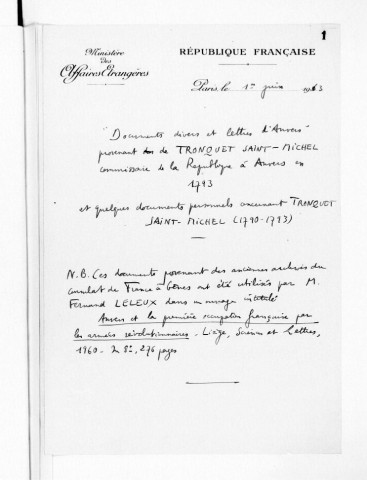 1
Ministère
des
Affaires Etrangères
RÉPUBLIQUE FRANÇAISE
Paris, le 1er juin 1963
"Documents divers et lettres d'Anvers"
provenant de TRONQUET SAINT-MICHEL
commissaire de la République à Anvers en
1793
et quelques documents personnels concernant TRONQUET
SAINT-MICHEL (1790-1793)
N.B. Ces documents provenant des anciennes archives du
consulat de France à Gênes ont été utilisés par M.
Fernand LELEUX dans un ouvrage intitulé
Anvers et la première occupation française par
les armées révolutionnaires. Liège, Sciences et Lettres,
1960. In 8°, 276 pages